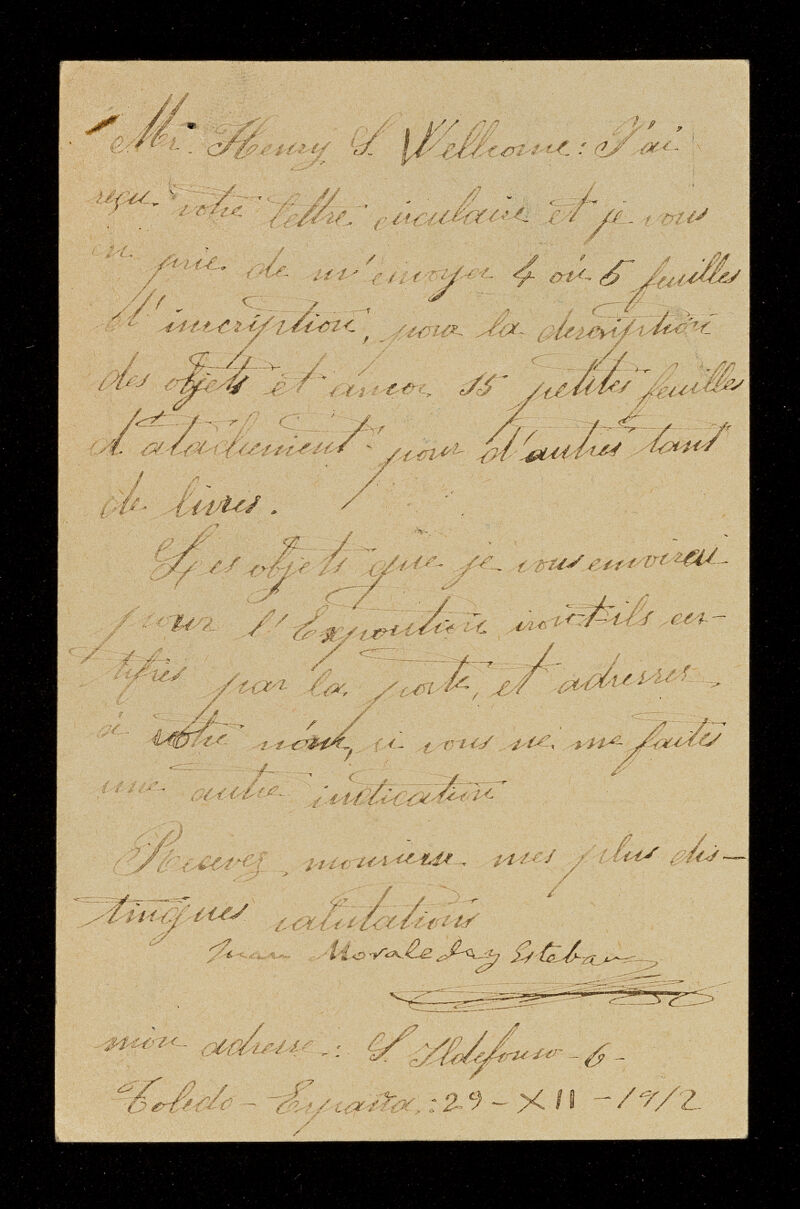 Mr. Henry S. Wellcome: J'ai
reçu votre lettre circulaire et je vous
en prie de m'envoyer 4 oú 5 feuilles
d'inscription, pour la description
des objets et ancor 15 petites feuilles
d'atachement pour d'autres tant
de livres.
Les objets que je vous envoirai
pour l'Exposition iront-ils cer-
tifies par la poste, et adresses
à votre nóm, si vous ne me faites
une autre indication
Recevez monsieur mes plus dis-
tingues salutations
Juan Moraleda y Esteban
mon adresse: S. Ildefonso - 6 -
Toledo - España: 29 - XII - 1912